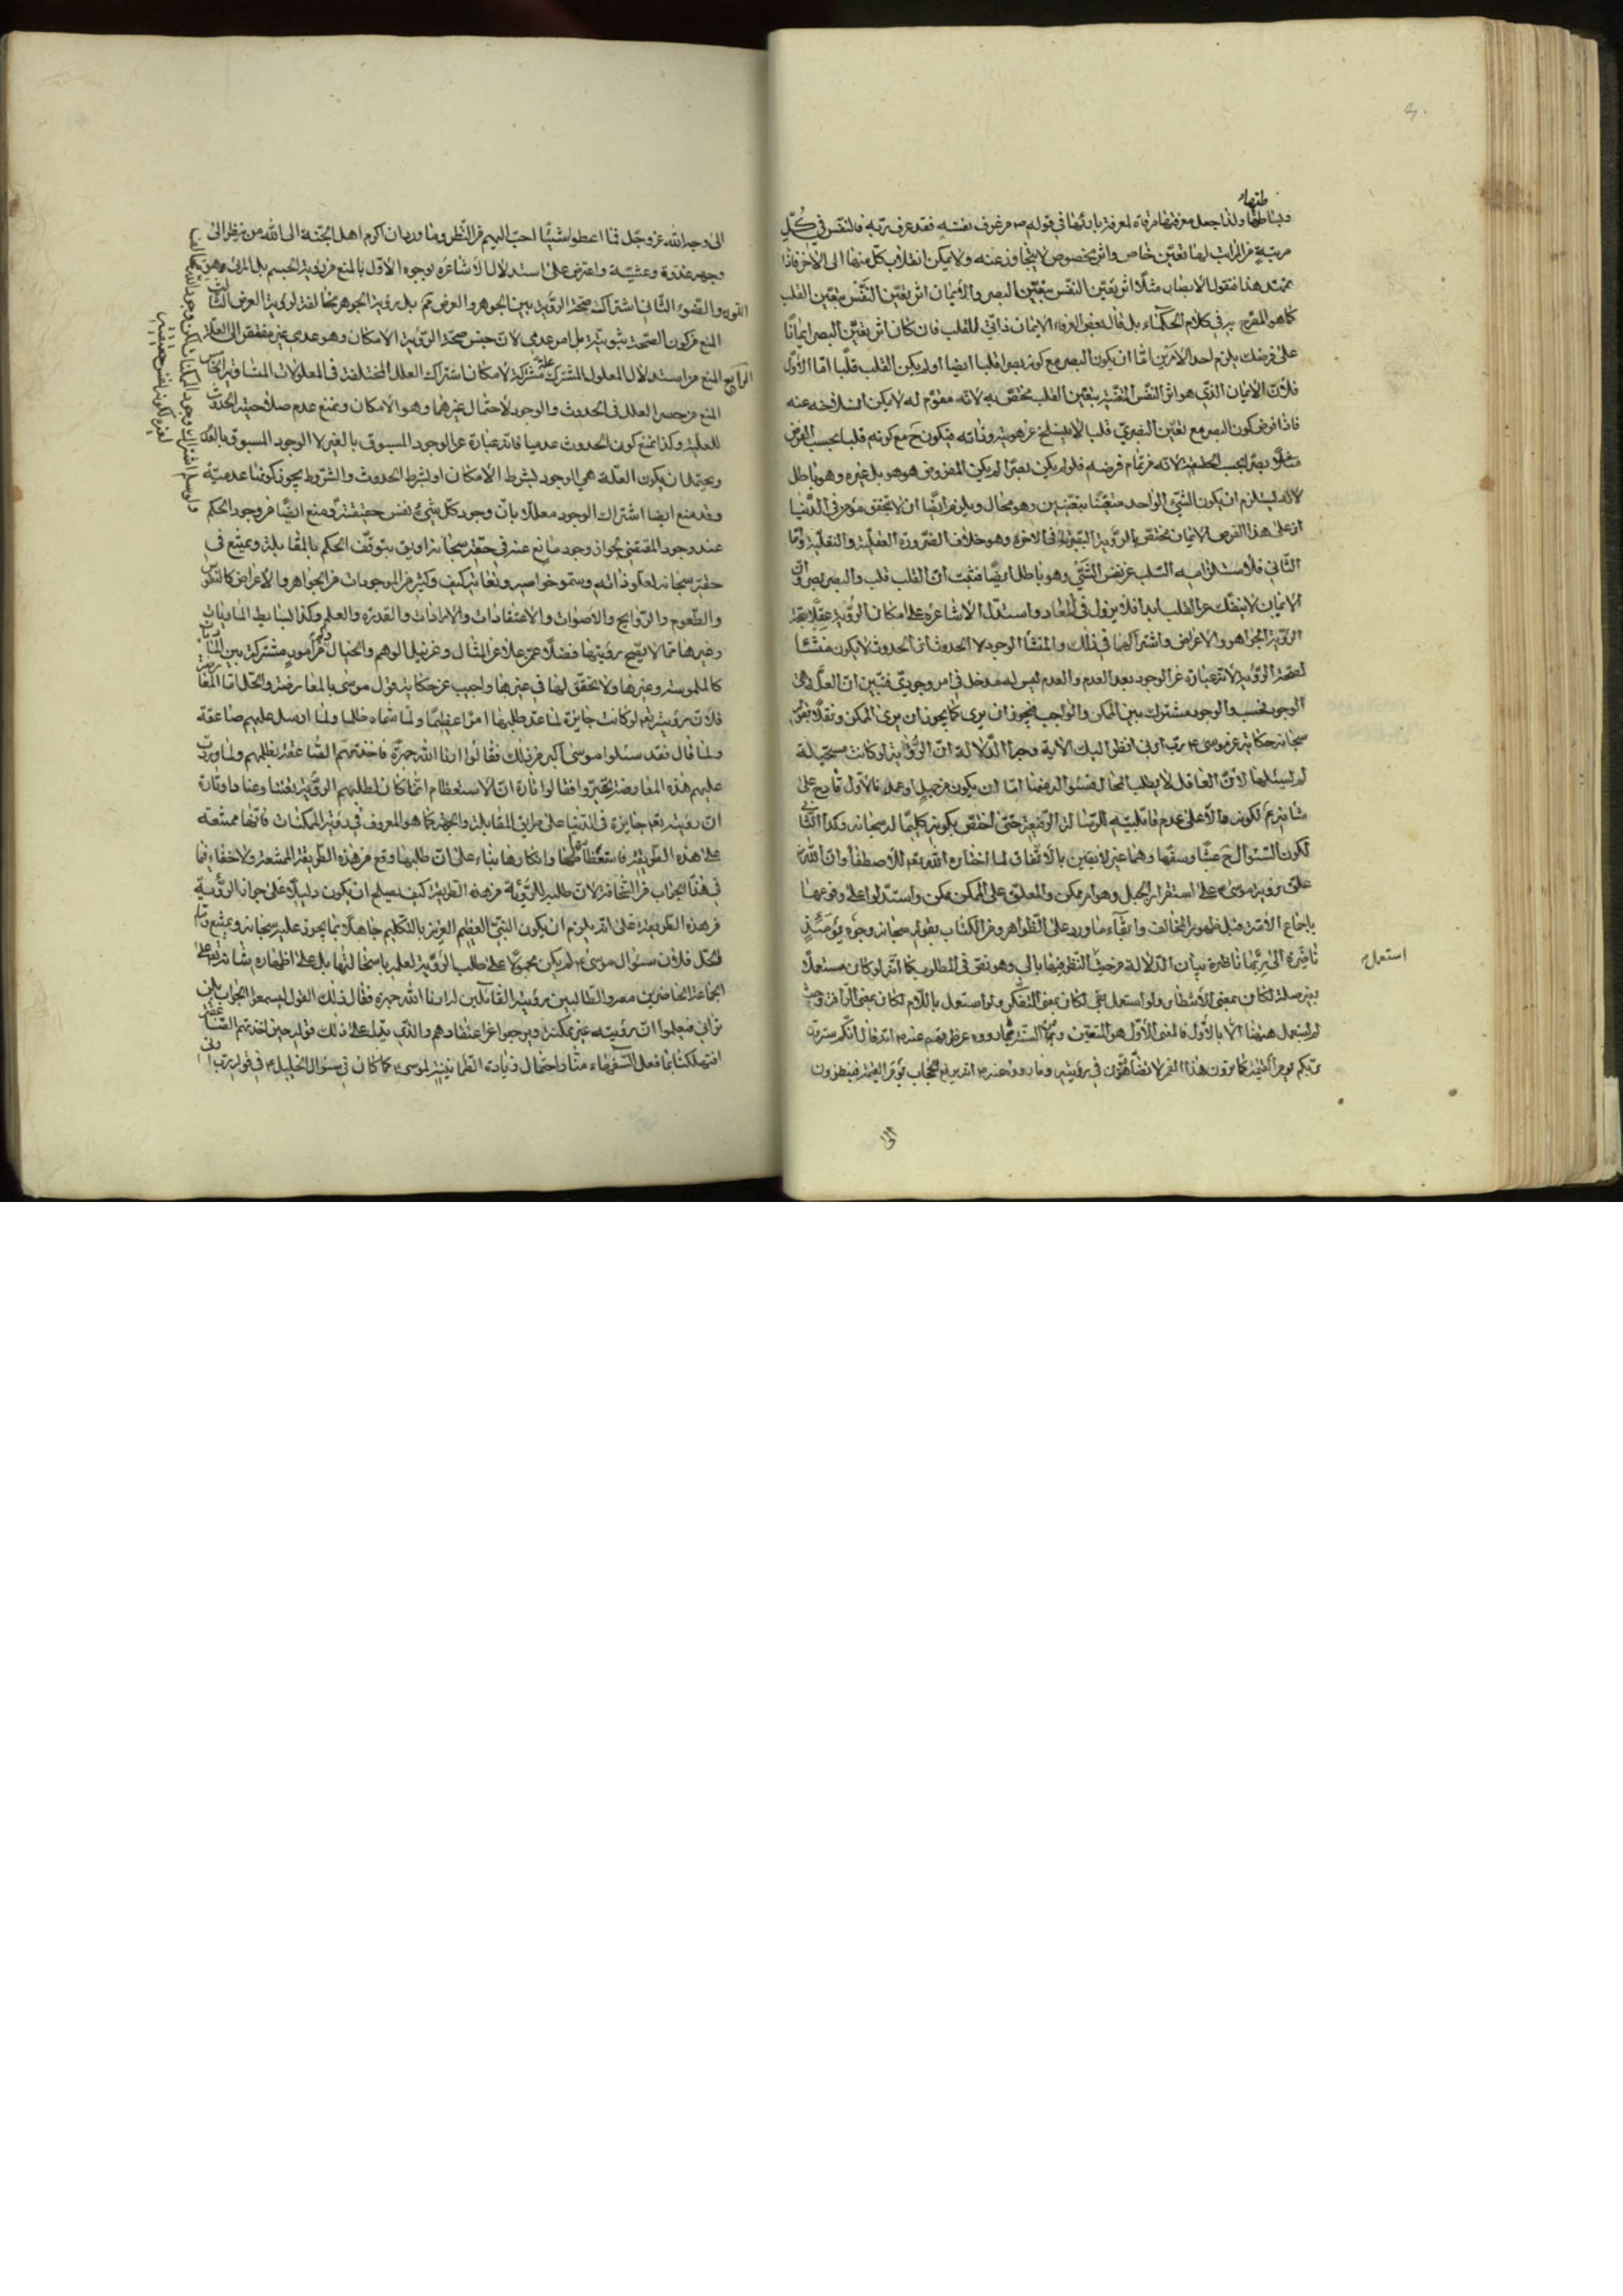 ولذا جعل معرفتها مرقاة لمعرفة بارئها في قوله ص من عرف نفسه فقد عرف ربه فالنفس في كل
مرتبة من المراتب لها تعين خاص واثر مخصوص لا يتجاوز عنه ولا يمكن انقلاب كل منها الى الآخر فاذا
تمهد هذا فنقول الابصار مثلا اثر تعين النفس بتعين البصر والايمان اثر تعين النفس بتعين القلب
كما هو المقرر في كلام الحكماء بل قال بعض العرفاء الايمان ذاتي للقلب فان كان اثر تعين البصر ايمانا
على فرضك يلزم احد الامرين اما ان يكون البصر مع كونه بصرا قلبا ايضا او لم يكن القلب قلبا اما الاول
فلان الايمان الذي هو اثر النفس المتعينة بتعين القلب مختص به لانه مقوم له لا يمكن انسلاخه عنه
فاذا فرض كون البصر مع تعين البصري قلب لا ينسلخ عن هويته وذاته فيكون ح مع كونه قلبا بحسب الفرض
بصرا بحسب لانه من تمام فرضه فلو لم يكن بصرا لم يكن المفروض هو هو بل غيره وهو باطل
لانه يستلزم ان يكون الشيء الواحد متعينا بتعينين وهو محال ويلزم ايضا ان لا يتحقق مؤمن في الدنيا
اذ على هذا الفرض الايمان مختص بالرؤية في الآخرة وهو خلاف الضرورة العقلية والنقلية واما
الثاني فلاستلزامه السلب عن نفس الشيء وهو باطل ايضا فثبت ان القلب قلب والبصر بصر وان
الايمان لا ينفك عن القلب ابدا فلا يزول في المعاد واستدل الاشاعرة على امكان الرؤية عقلا بصحة
الرؤية الجواهر والاعراض واشتراكهما في ذلك والمنشأ الوجود لا الحدوث اذ الحدوث لا يكون منشئا
لصحة الرؤية لانه عبارة عن الوجود بعد العدم والعدم ليس له مدخل في امر وجودي فتبين ان العلة هي
الوجود فحسب والوجود مشترك بين الممكن والواجب فيجوز ان يرى كما يجوز ان يرى الممكن ونقلا بقوله
سبحانه حكاية عن موسى ع رب ارني انظر اليك الآية وجه الدلالة ان الرؤية لو كانت مستحيلة
لم يسئلها لان العاقل لا يطلب المحال فسئواله عنها اما ان يكون من جهل او عمد فالاول قادح على
لكون السئوال ح عبثا وسفها وهما غير لايقين بالاتفاق لما اختاره الله تعم للاصطفاء وان الله
علق رؤية موسى ع على استقرار الجبل وهو امر ممكن والمعلق على الممكن ممكن واستدلوا على وقوعها
باجماع الامة قبل ظهور المخالف وابقاء ما ورد على الظواهر ومن الكتاب بقوله سبحانه وجوه يومئذ
ناضرة الى ربها ناظرة بيان الدلالة من حيث النظر فيها بالى وهو نص في المطلوب كما انه لو كان مستعملا
بغير صلة لكان بمعنى الانتظار ولو استعمل بفي لكان بمعنى التفكر ولو استعمل باللام لكان بمعنى الرأفة وحيث
لم يستعمل ههنا الا بالاول فالمعنى الاول هو المتعين ومن السنة بما رووه عن عنه ص انه قال انكم سترون
ربكم يوم القيمة كما ترون هذا القمر لا تضامون في رؤيته وما رووا عنه ص انه يرفع الحجاب يوم القيمة فينظرون
استعمل
الى
الى وجه الله عز وجل فما اعطوا شيئا احب اليهم من النظر وما روى ان اكرم اهل الجنة الى الله من ينظر الى
وجهه غدوة وعشية واعترض على استدلال الاشاعرة بوجوه الاول بالمنع من رؤية الجسم بل المرئي هو
اللون والضوء الثاني اشتراك صحة الرؤية بين الجوهر والعرض بل رؤية الجوهر مخالفة لرؤية العرض الثالث
المنع من كون الصحة ثبوتية بل امر عدمي لان جنس صحة الرؤية الامكان وهو عدمي غير مفتقر الى العلة
الرابع المنع من استدلال المعلول المشترك علة مشتركة لامكان اشتراك العلل المختلفة في المعلولات المتساوية الخامس
المنع من حصر العلل في الحدوث والوجود لاحتمال غيرهما وهو الامكان ونمنع عدم صلاحية الحدوث
للعلية وكذا نمنع كون الحدوث عدميا فانه عبارة عن الوجود المسبوق بالغير لا الوجود المسبوق بالعدم
ويحتمل ان يكون العلة هي الوجود بشرط الامكان او بشرط الحدوث والشروط يجوز كونها عدمية
وقد منع ايضا اشتراك الوجود معللا بان وجود كل شيء نفس حقيقته ومنع ايضا من وجود الحكم
عند وجود المقتضي لجواز وجود مانع عنه في حقه سبحانه او يتوقف الحكم بالمقابلة ويمتنع في
حقه سبحانه لعلو ذاته وسمو خواصه وكثير من الموجودات من الجواهر والاعراض كالنفوس
والطعوم والروايح والاصوات والاعتقادات والارادات والقدرة والعلم وكذا البسايط الماديات
وغيرها مما لا يصح رؤيتها فضلا عن المثال وعن نيل الوهم والخيال من امور مشتركة بين الماديات
كالملموسة وغيرها ولا يتحقق لها في غيرها واجيب عن حكاية قول موسى بالمعارضة والحل اما المعارضة
فلان رؤيته تعم لو كانت جايزة لما عد طلبها امرا عظيما ولما سماه ظلما ولما ارسل عليهم صاعقة
ولما قال فقد سئلوا موسى اكبر من ذلك فقالوا ارنا الله جهرة فاخذتهم الصاعقة بظلمهم ولما وردت
عليهم هذه المعارضة تحيروا فقالوا تارة ان الاستعظام انما كان لطلبهم الرؤية تعنتا وعنادا وتارة
ان رؤيته تعم جايزة في الدنيا على طريق المقابلة والجهة كما هو المعروف في رؤية الممكنات فانها ممتنعة
على هذه الطريقة فاستعظام طلبها وانكارها بناء على ان طلبها وقع من هذه الطريقة الممتنعة ولا خفاء
في هذا الجواب من السخافة لان طلبه للرؤية من هذه الطريقة كيف يصلح ان يكون دليلا على جواز الرؤية
من هذه الطريقة على انه يلزم ان يكون النبي العظيم العزيز بالتكليم جاهلا بما يجوز عليه سبحانه ويمتنع واما
الحل فلان سئوال موسى ع لم يكن محمولا على طلب الرؤية لعلمه باستحالتها بل على اظهاره
الجماعة الحاضرين معه والطالبين رؤيته القائلين له ارنا الله جهرة فقال ذلك القول ليسمعوا الجواب بلن
تراني فيعلموا ان رؤيته غير ممكنة ويرجعوا عن اعتقادهم والذي يدل على ذلك قوله حين اخذتهم الصاعقة
اتهلكنا بما فعل السفهاء منا واحتمال زيادة الطمانينة لموسى ع كما كان في سئوال الخليل ع في قوله رب ارني